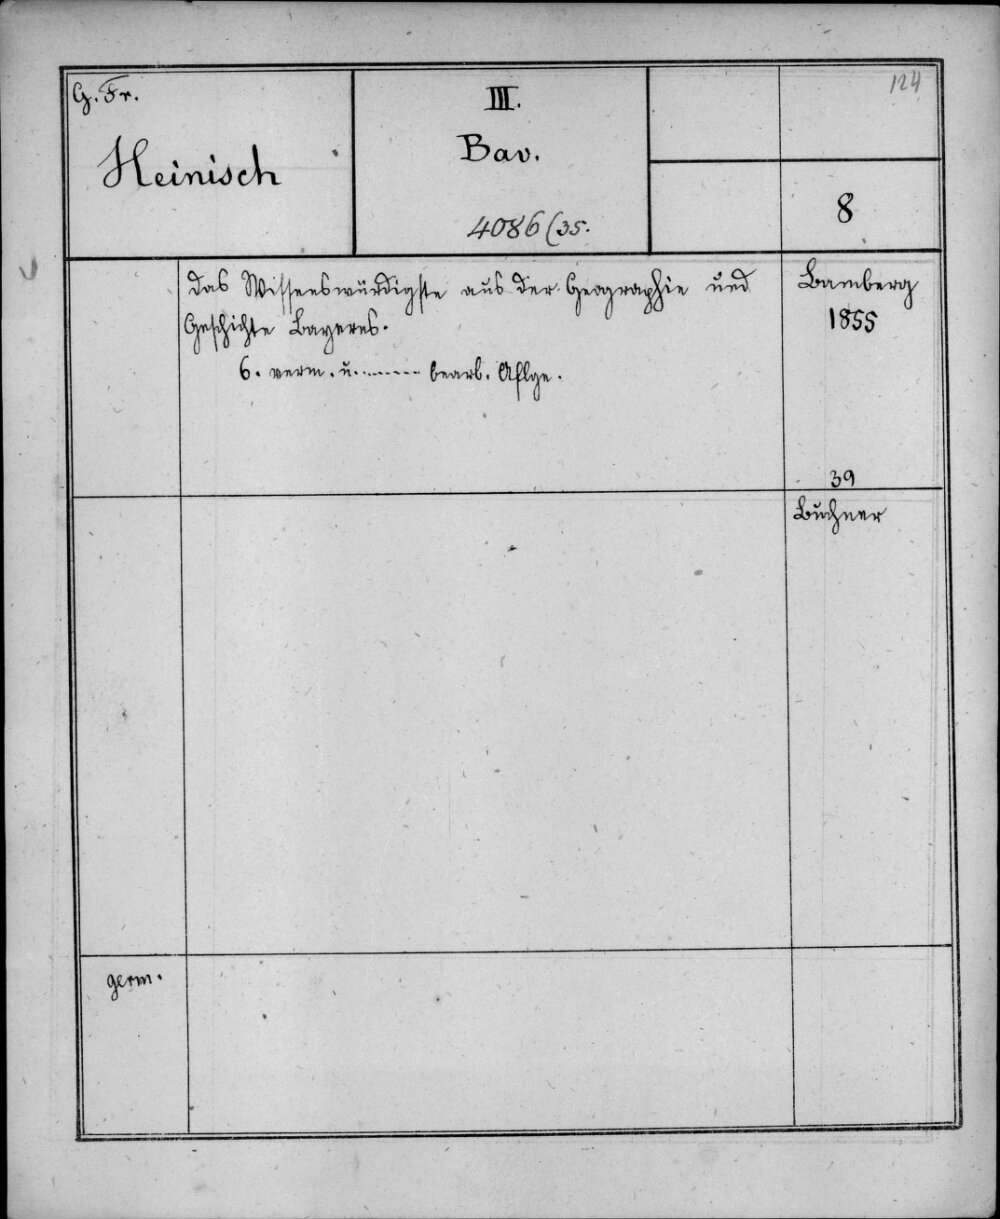 124
G. Fr.
Heinisch
III.
Bav.
4086(35.
8
Das Wissenswürdigste aus der Geographie und
Geschichte Bayerns.
6. verm. u. ........ bearb. Aflge.
Bamberg
1855
39
Buchner
germ.